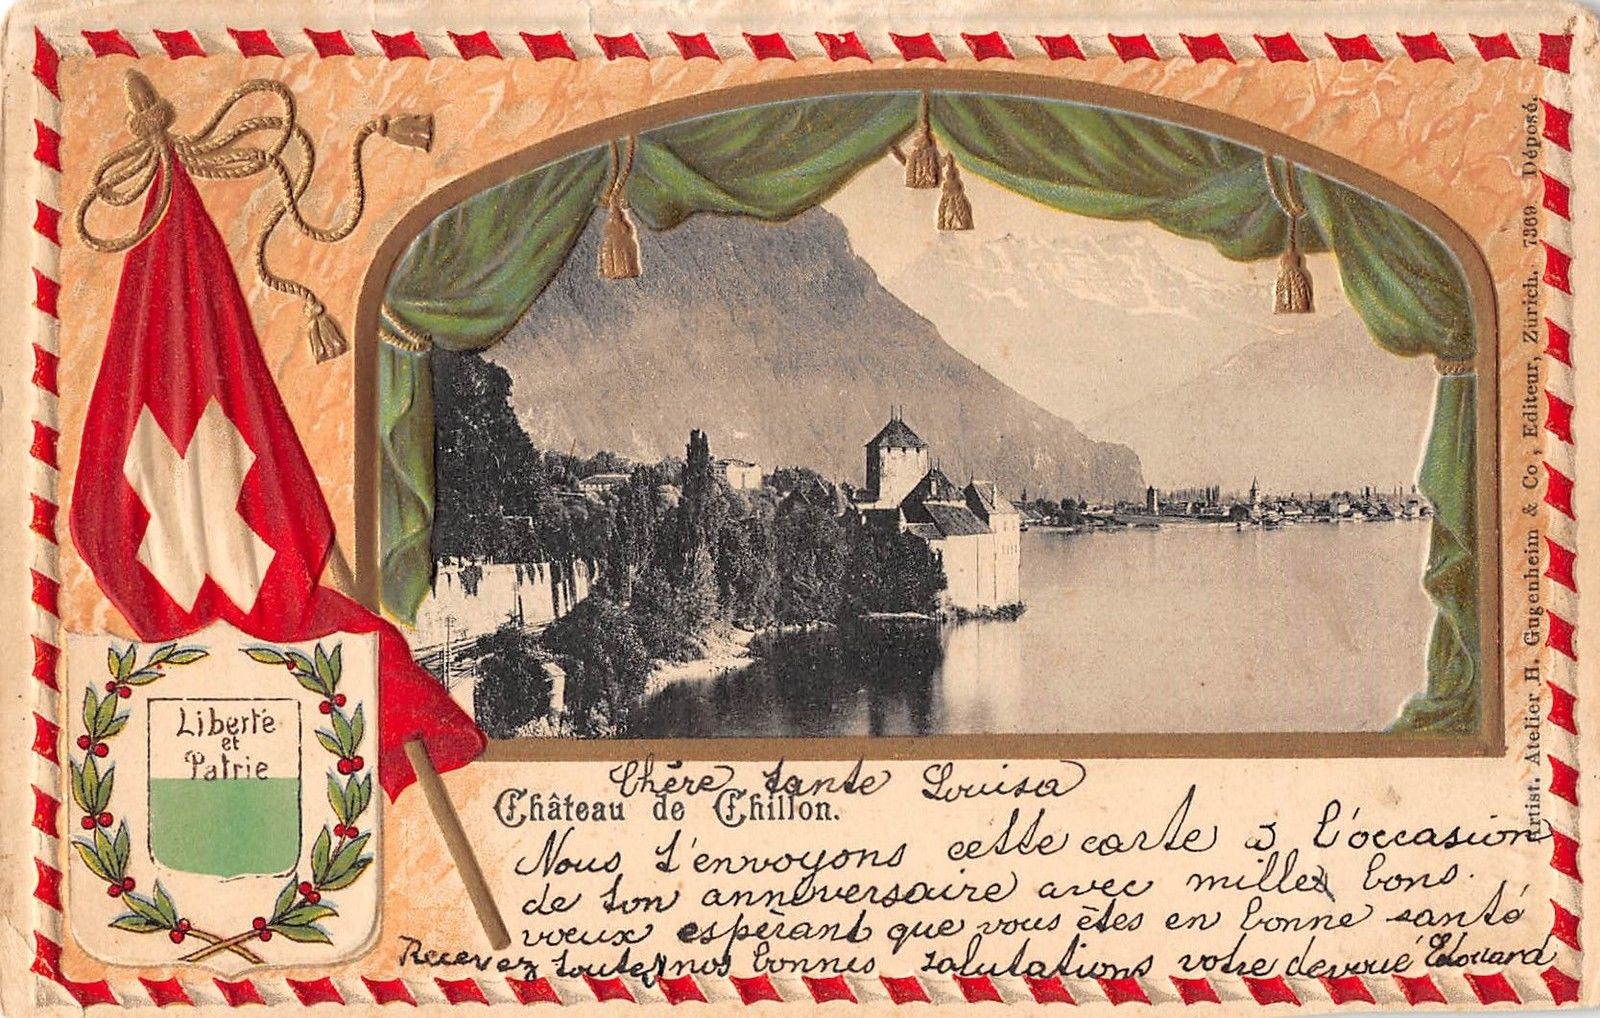 Liberté
et
Patrie
Chère tante Louisa
Château de Chillon.
Nous t'envoyons cette carte à l'occasion
de ton anniversaire avec mille bons
voeux espèrant que vous êtes en bonne santé
Recevez toutes nos bonnes salutations votre devoué Edouard
Artist. Atelier H. Gugenheim & Co, Editeur, Zürich. 7369 Déposé.